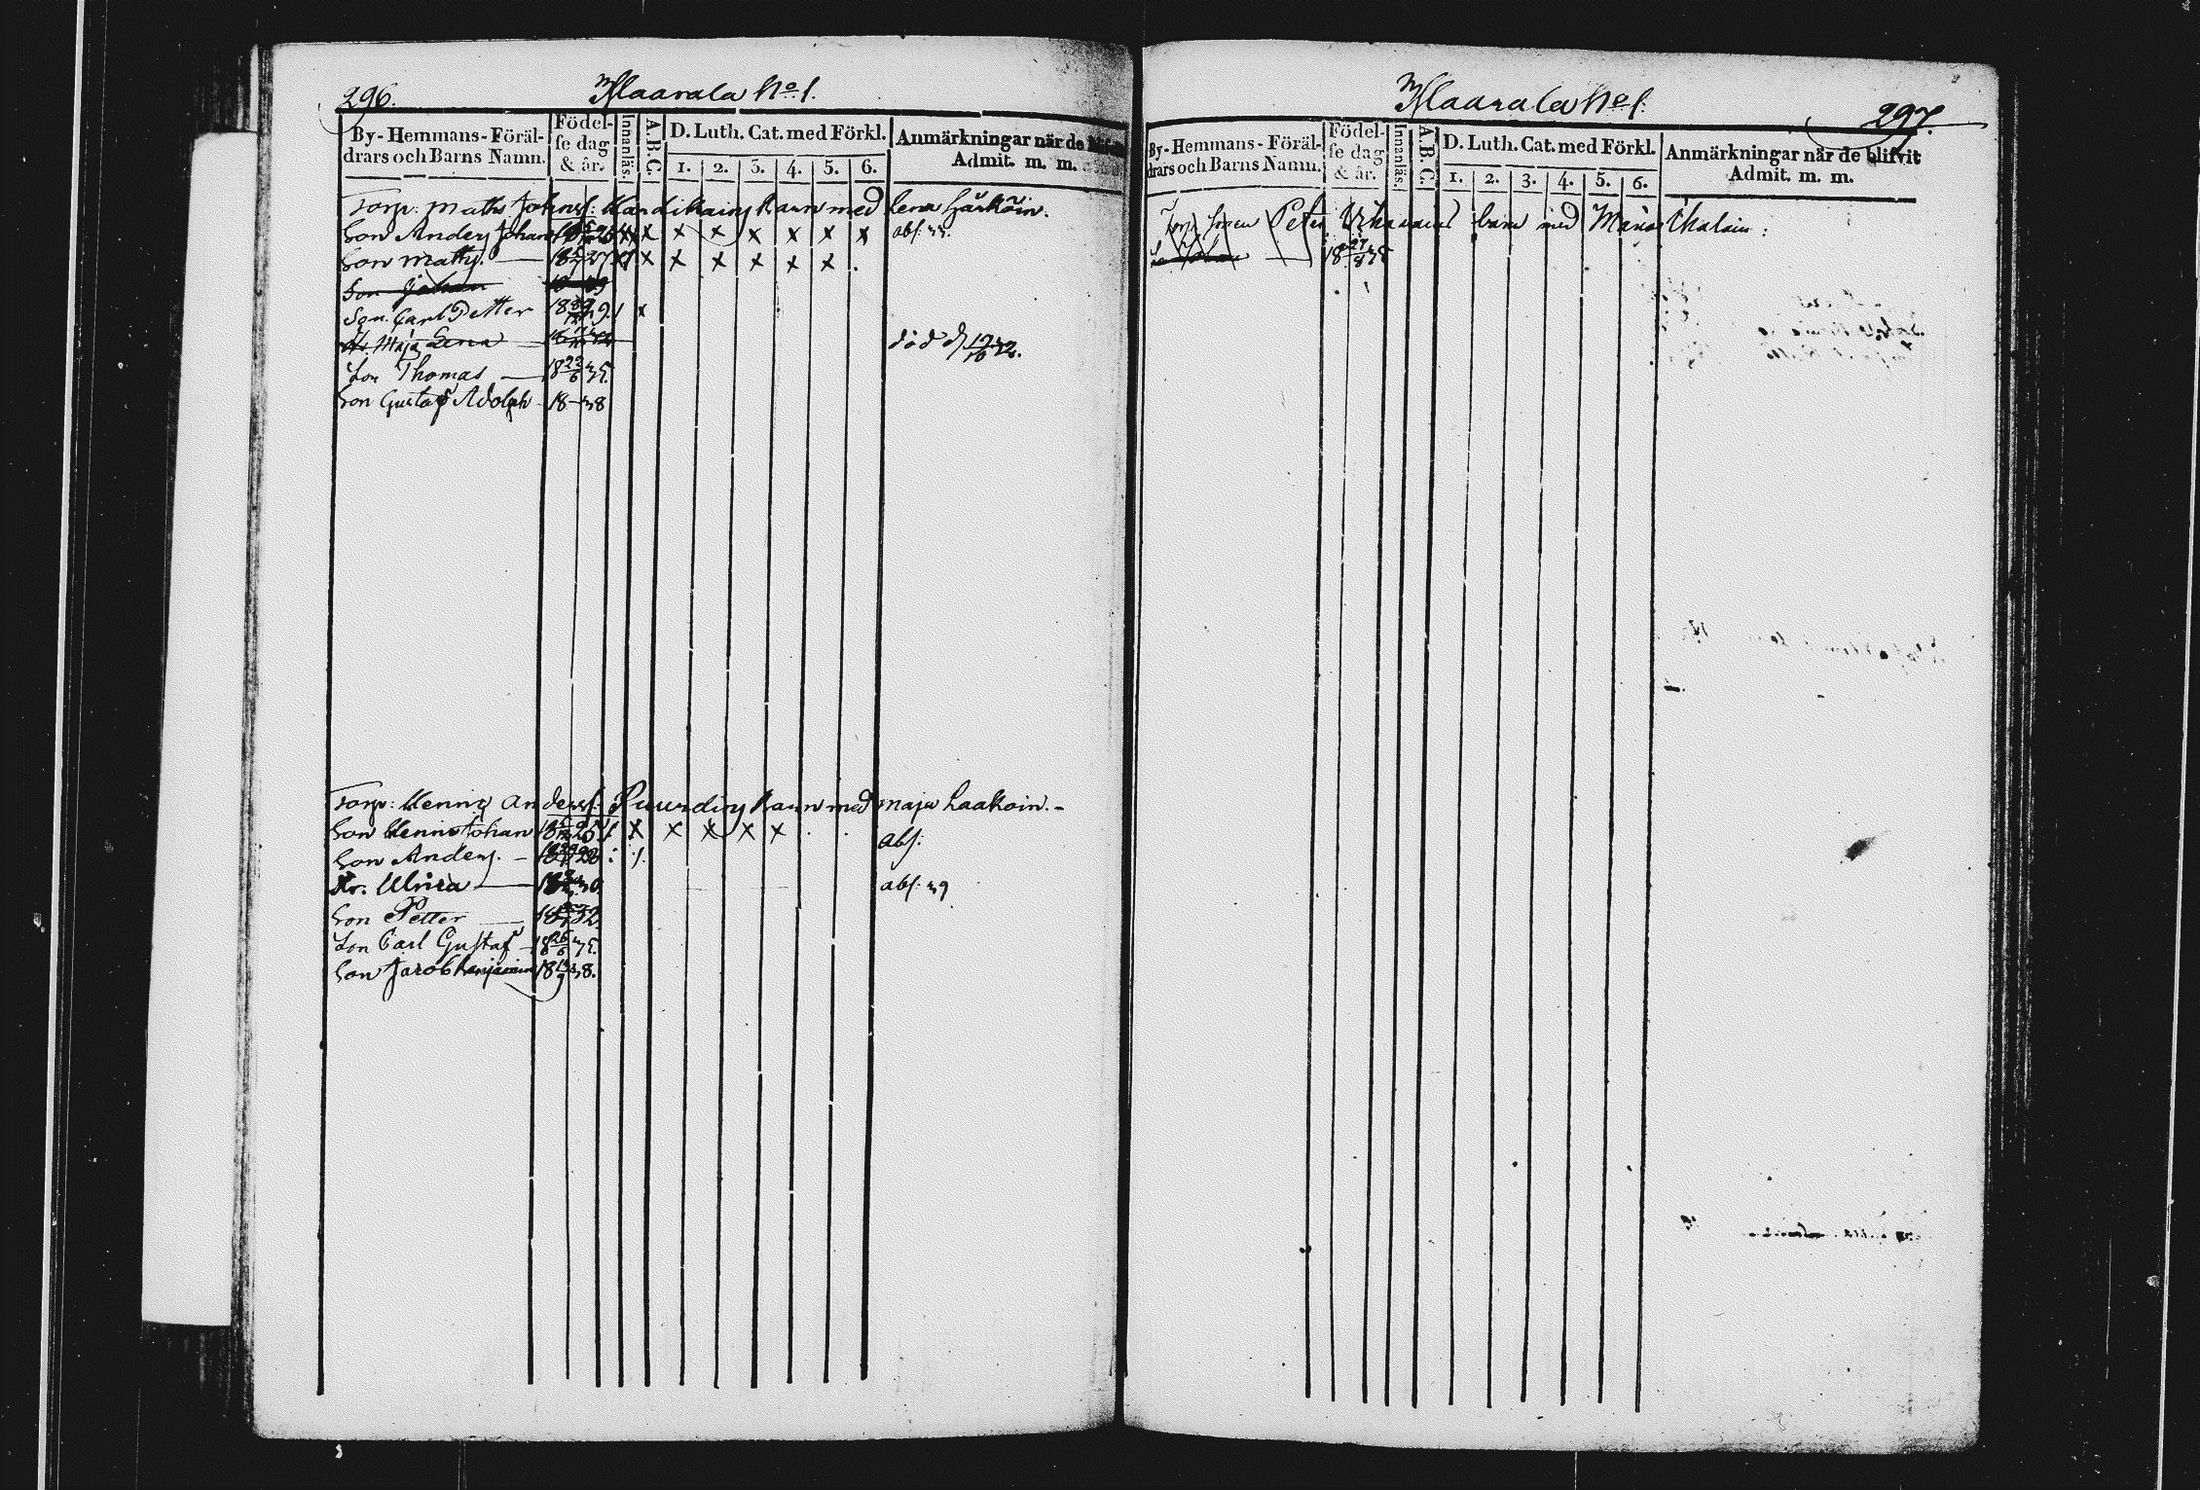 296. Maarala No 1.
By-Hemmans-Föräl-
drars och Barns Namn.
Födel-
se dag
& år.
Innanläs.
A.B.C.
D. Luth. Cat. med Förkl.
1. 2. 3. 4. 5. 6.
Anmärkningar när de
Admit. m. m.
Torp: Maths Johanss: barn med Lena
Son Anders Johan x x x x x x x abs:
Son Maths — x x x x x x
Son Johan
Son Carl Petter x
Maja Lena död d 12/10 32.
Son Thomas — 18 22/6 35.
Son Gustaf Adolph 18 — 38
Torp: Henric Anderss: barn med Maja Laakoin. -
Son Henric Johan x x x x x abs:
Son Anders. —
Dr. Ulrica — abs: 39
Son Petter — 32
Son Carl Gustaf 18 26/6 35.
Son Jacob Benjamin 38.
Maarala No 1. 297.
By-Hemmans-Föräl-
drars och Barns Namn.
Födel-
se dag
& år.
Innanläs.
A.B.C.
D. Luth. Cat. med Förkl.
1. 2. 3. 4. 5. 6.
Anmärkningar när de blifvit
Admit. m. m.
Torp Peter barn med Maria
Johan — 18 27/8 35